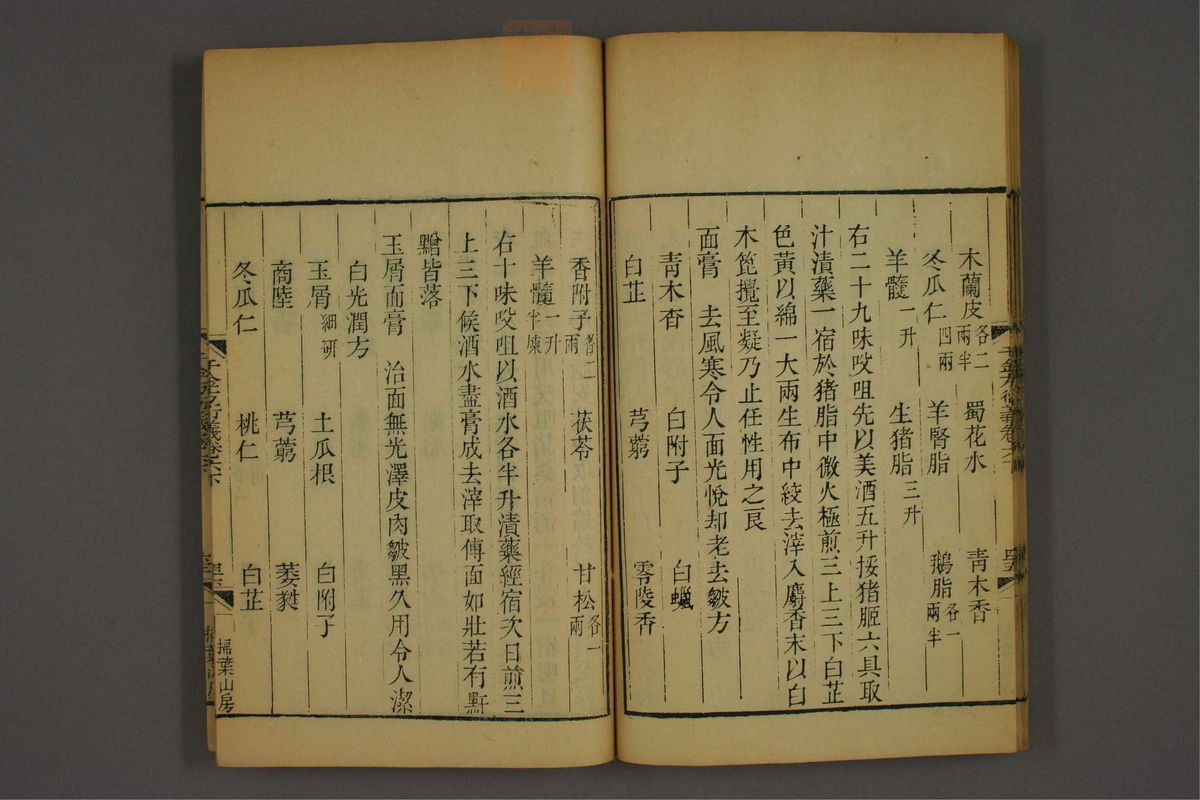 木蘭皮各二兩半　蜀花水　青木香
冬瓜仁四兩　羊腎脂　鵝脂各一兩半
羊髓一升　生猪脂三升
右二十九味㕮咀先以美酒五升挼猪胵六具取
汁漬藥一宿於猪脂中微火極煎三上三下白芷
色黃以綿一大兩生布中絞去滓入麝香末以白
木篦攪至凝乃止任性用之良
面膏　去風寒令人面光悅却老去皺方
青木香　白附子　白蠟
白芷　芎藭　零陵香
香附子各二兩　茯苓　甘松各一兩
羊髓一升半煉
右十味㕮咀以酒水各半升漬藥經宿次日煎三
上三下候酒水盡膏成去滓取傅面如壯若有䵟
䵳皆落
玉屑面膏　治面無光澤皮肉皺黑久用令人潔
白光潤方
玉屑細研　土瓜根　白附子
商陸　芎藭　萎蕤
冬瓜仁　桃仁　白芷
掃葉山房